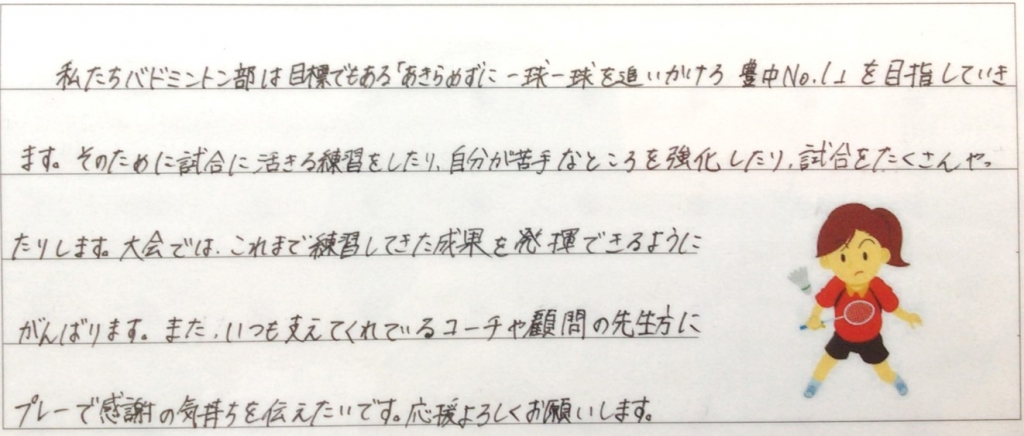 私たちバドミントン部は目標でもある「あきらめずに一球一球を追いかけろ 豊中No.1」を目指していき
ます。そのために試合に活きる練習をしたり、自分が苦手なところを強化したり、試合をたくさんやっ
たりします。大会では、これまで練習してきた成果を発揮できるように
がんばります。また、いつも支えてくれているコーチや顧問の先生方に
プレーで感謝の気持ちを伝えたいです。応援よろしくお願いします。